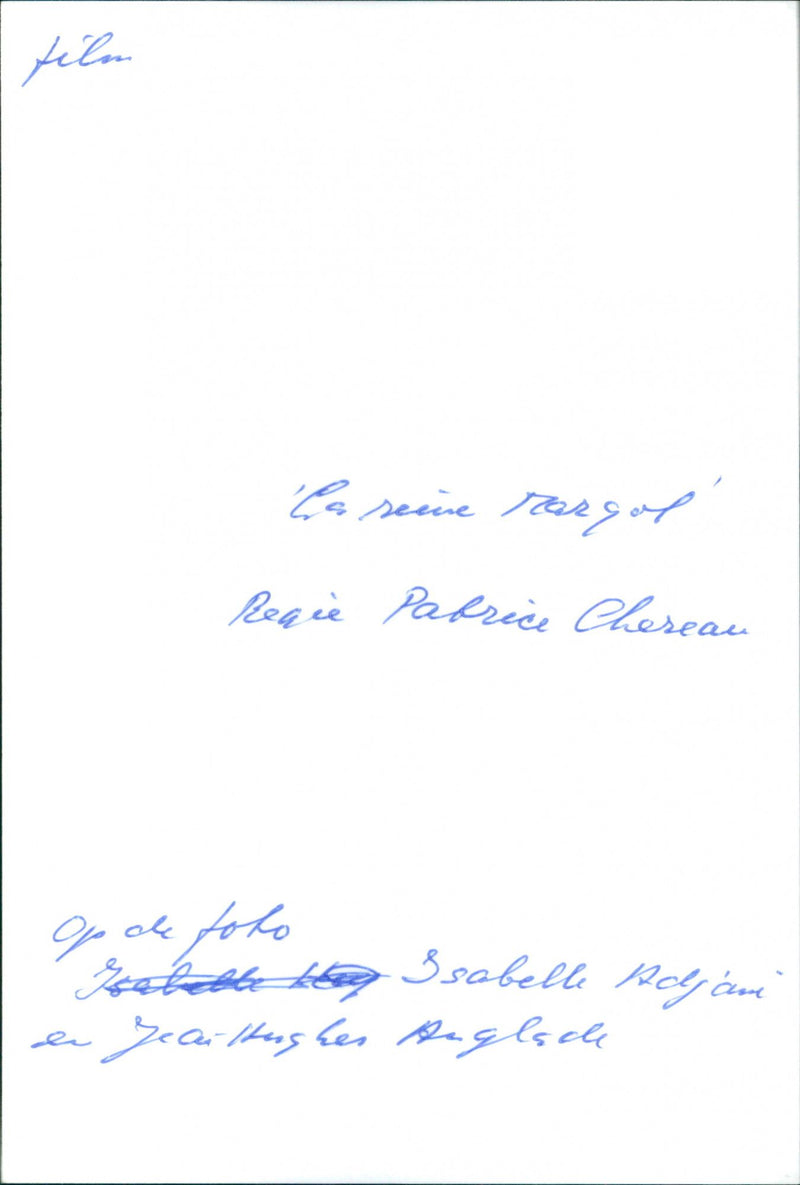 film
'La reine Margot'
Regie Patrice Chereau
Op de foto
Isabelle Isabelle Adjani
en Jean Hughes Anglade